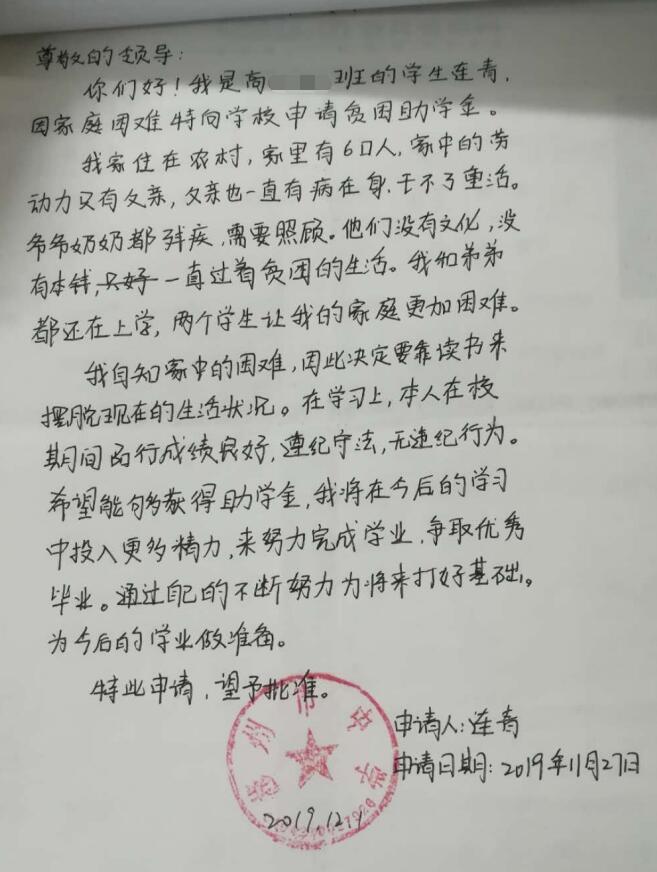 尊敬的领导：
你们好！我是高 班的学生连青，
因家庭困难特向学校申请贫困助学金。
我家住在农村，家里有6口人，家中的劳
动力只有父亲，父亲也一直有病在身，干不了重活。
爷爷奶奶都残疾，需要照顾。他们没有文化，没
有本钱，只好一直过着贫困的生活。我和弟弟
都还在上学，两个学生让我的家庭更加困难。
我自知家中的困难，因此决定要靠读书来
摆脱现在的生活状况。在学习上，本人在校
期间品行成绩良好，遵纪守法，无违纪行为。
希望能够获得助学金，我将在今后的学习
中投入更多精力，来努力完成学业，争取优秀
毕业。通过自己的不断努力为将来打好基础。
为今后的学业做准备。
特此申请，望予批准。
申请人：连青
申请日期：2019年11月27日
州市中学
2019.12.1